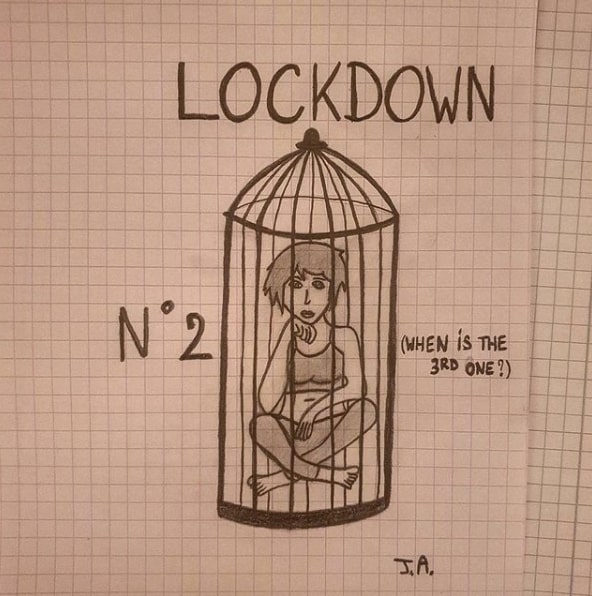 LOCKDOWN
N°2
(WHEN iS THE
3RD ONE?)
J.A.